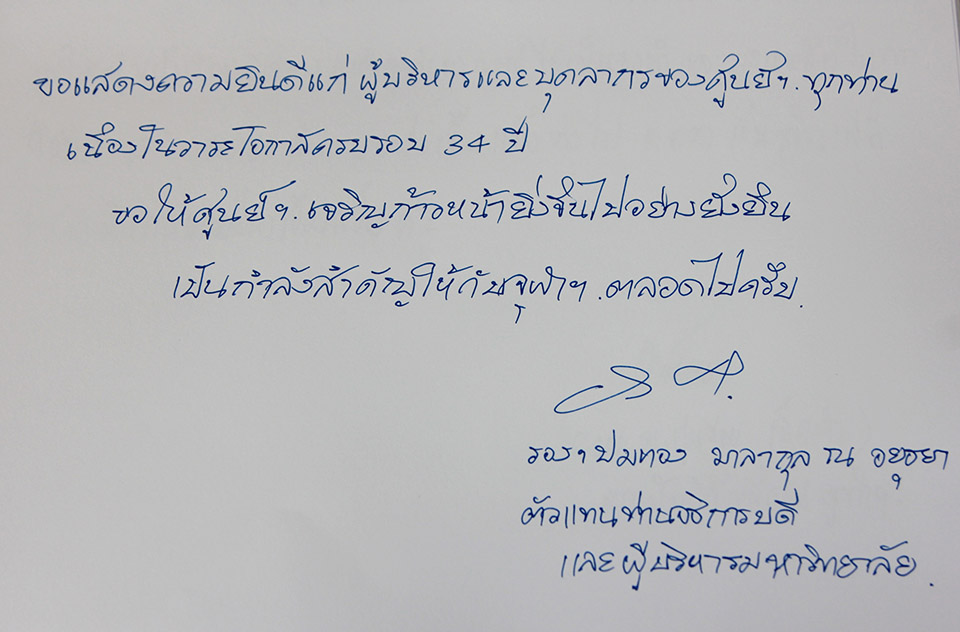 ขอแสดงความยินดีแก่ ผู้บริหารและบุคลาการของศูนย์ฯ.ทุกท่าน
เนื่องในวาระโอกาสครบรอบ 34 ปี
ขอให้ศูนย์ฯ.เจริญก้าวหน้ายิ่งขึ้นไปอย่างยั่งยืน
เป็นกำลังสำคัญให้กับจุฬาฯ.ตลอดไปครับ.
รองฯ ปมทอง มาลากุล ณ อยุธยา
ตัวแทนท่านอธิการบดี
และผู้บริหารมหาวิทยาลัย.